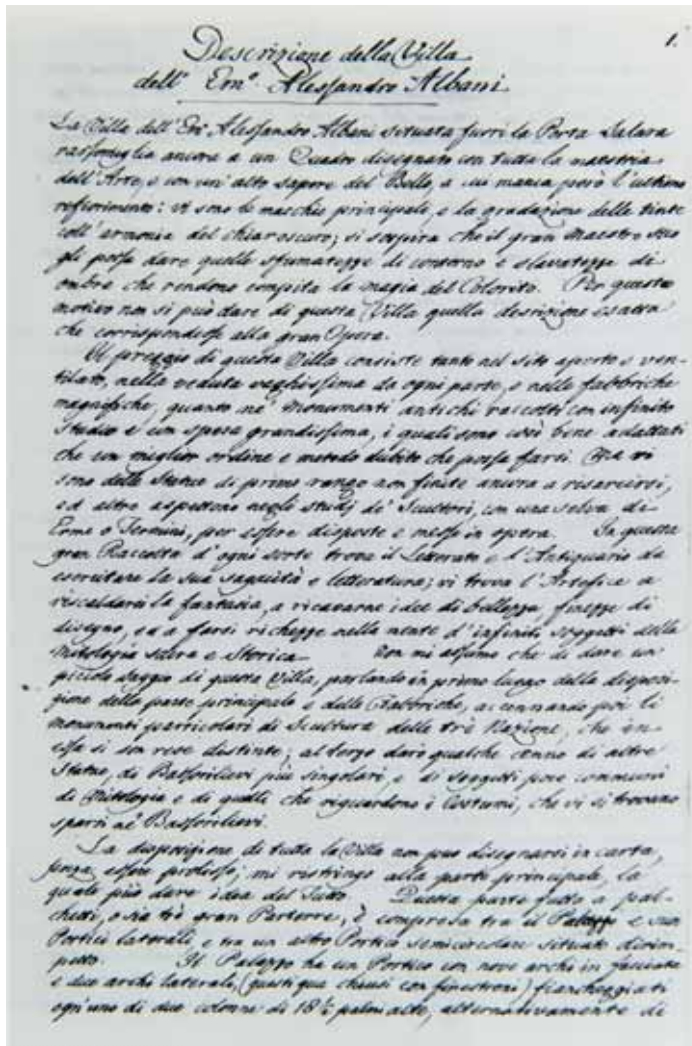 1.
Descrizione della Villa
dell' Em.º Alessandro Albani
La Villa dell' Em.º Alessandro Albani situata fuori la Porta Salara
rassomiglia ancora a un Quadro disegnato con tutta la maestria
dell'Arte, e con un' alto sapore del Bello, a cui manca però l'ultimo
: vi sono le macchie principale, e la gradazione delle tinte
coll'armonia del chiaroscuro; si sospira che il gran Maestro suo
gli possa dare quelle sfumatezze di contorno e slavatezza di
ombre che rendono compita la magia del Colorito. Per questo
motivo non si può dare di questa Villa quella descrizione esatta
che corrispondesse alla gran Opera.
Il preggio di questa Villa consiste tanto nel sito aperto e ven-
tilato, nella veduta vaghissima da ogni parte, e nelle fabbriche
magnifiche, quanto ne' Monumenti antichi raccolti con infinito
Studio e con spesa grandissima, i quali sono così bene adattati
che un miglior ordine e metodo dubito che possa farsi. Ma vi
sono delle Statue di primo rango non finite ancora a risarcirsi,
ed altre aspettono negli studj de' Scultori, con una selva di
Erme o Termini, per essere disposte e messe in opera. In questa
gran Raccolta d'ogni sorte trova il Letterato e l'Antiquario da
esercitare la sua sagacità e letteratura; vi trova l'Artefice a
riscaldarsi la fantasia, a ricavarne idee di bellezza finezze di
disegno, ed a farsi richezze nella mente d'infiniti soggetti della
Mitologia sacra e Storica. Non mi assumo che di dare un
piccolo saggio di questa Villa, parlando in primo luogo della disposi-
zione della parte principale e delle Fabbriche, accennando poi li
monumenti particolari di Scultura delle trè Nazione, che in
essa si son rese distinte; al terzo darò qualche cenno di altre
Statue, di Bassirilievi più singolari, e di soggetti poco communi
di Mitologia e di quelli che riguardono i Costumi, che vi si trovano
sparsi ne' Bassirilievi.
La disposizione di tutta la Villa non può disegnarsi in carta,
senza essere prolisso; mi ristringo alla parte principale, la
quale può dare idea del Tutto. Questa parte fatto a pal-
chetti, o sia trè gran Parterre, è compresa tra il Palazzo e suoi
Portici laterali, e tra un altro Portico semicircolare situato dirim-
petto. Il Palazzo ha un Portico con nove archi in facciata
e due archi laterale, (questi qua chiusi con finestroni) fiancheggiati
ogn'uno di due colonne di 18½ palmi alte, alternativamente di